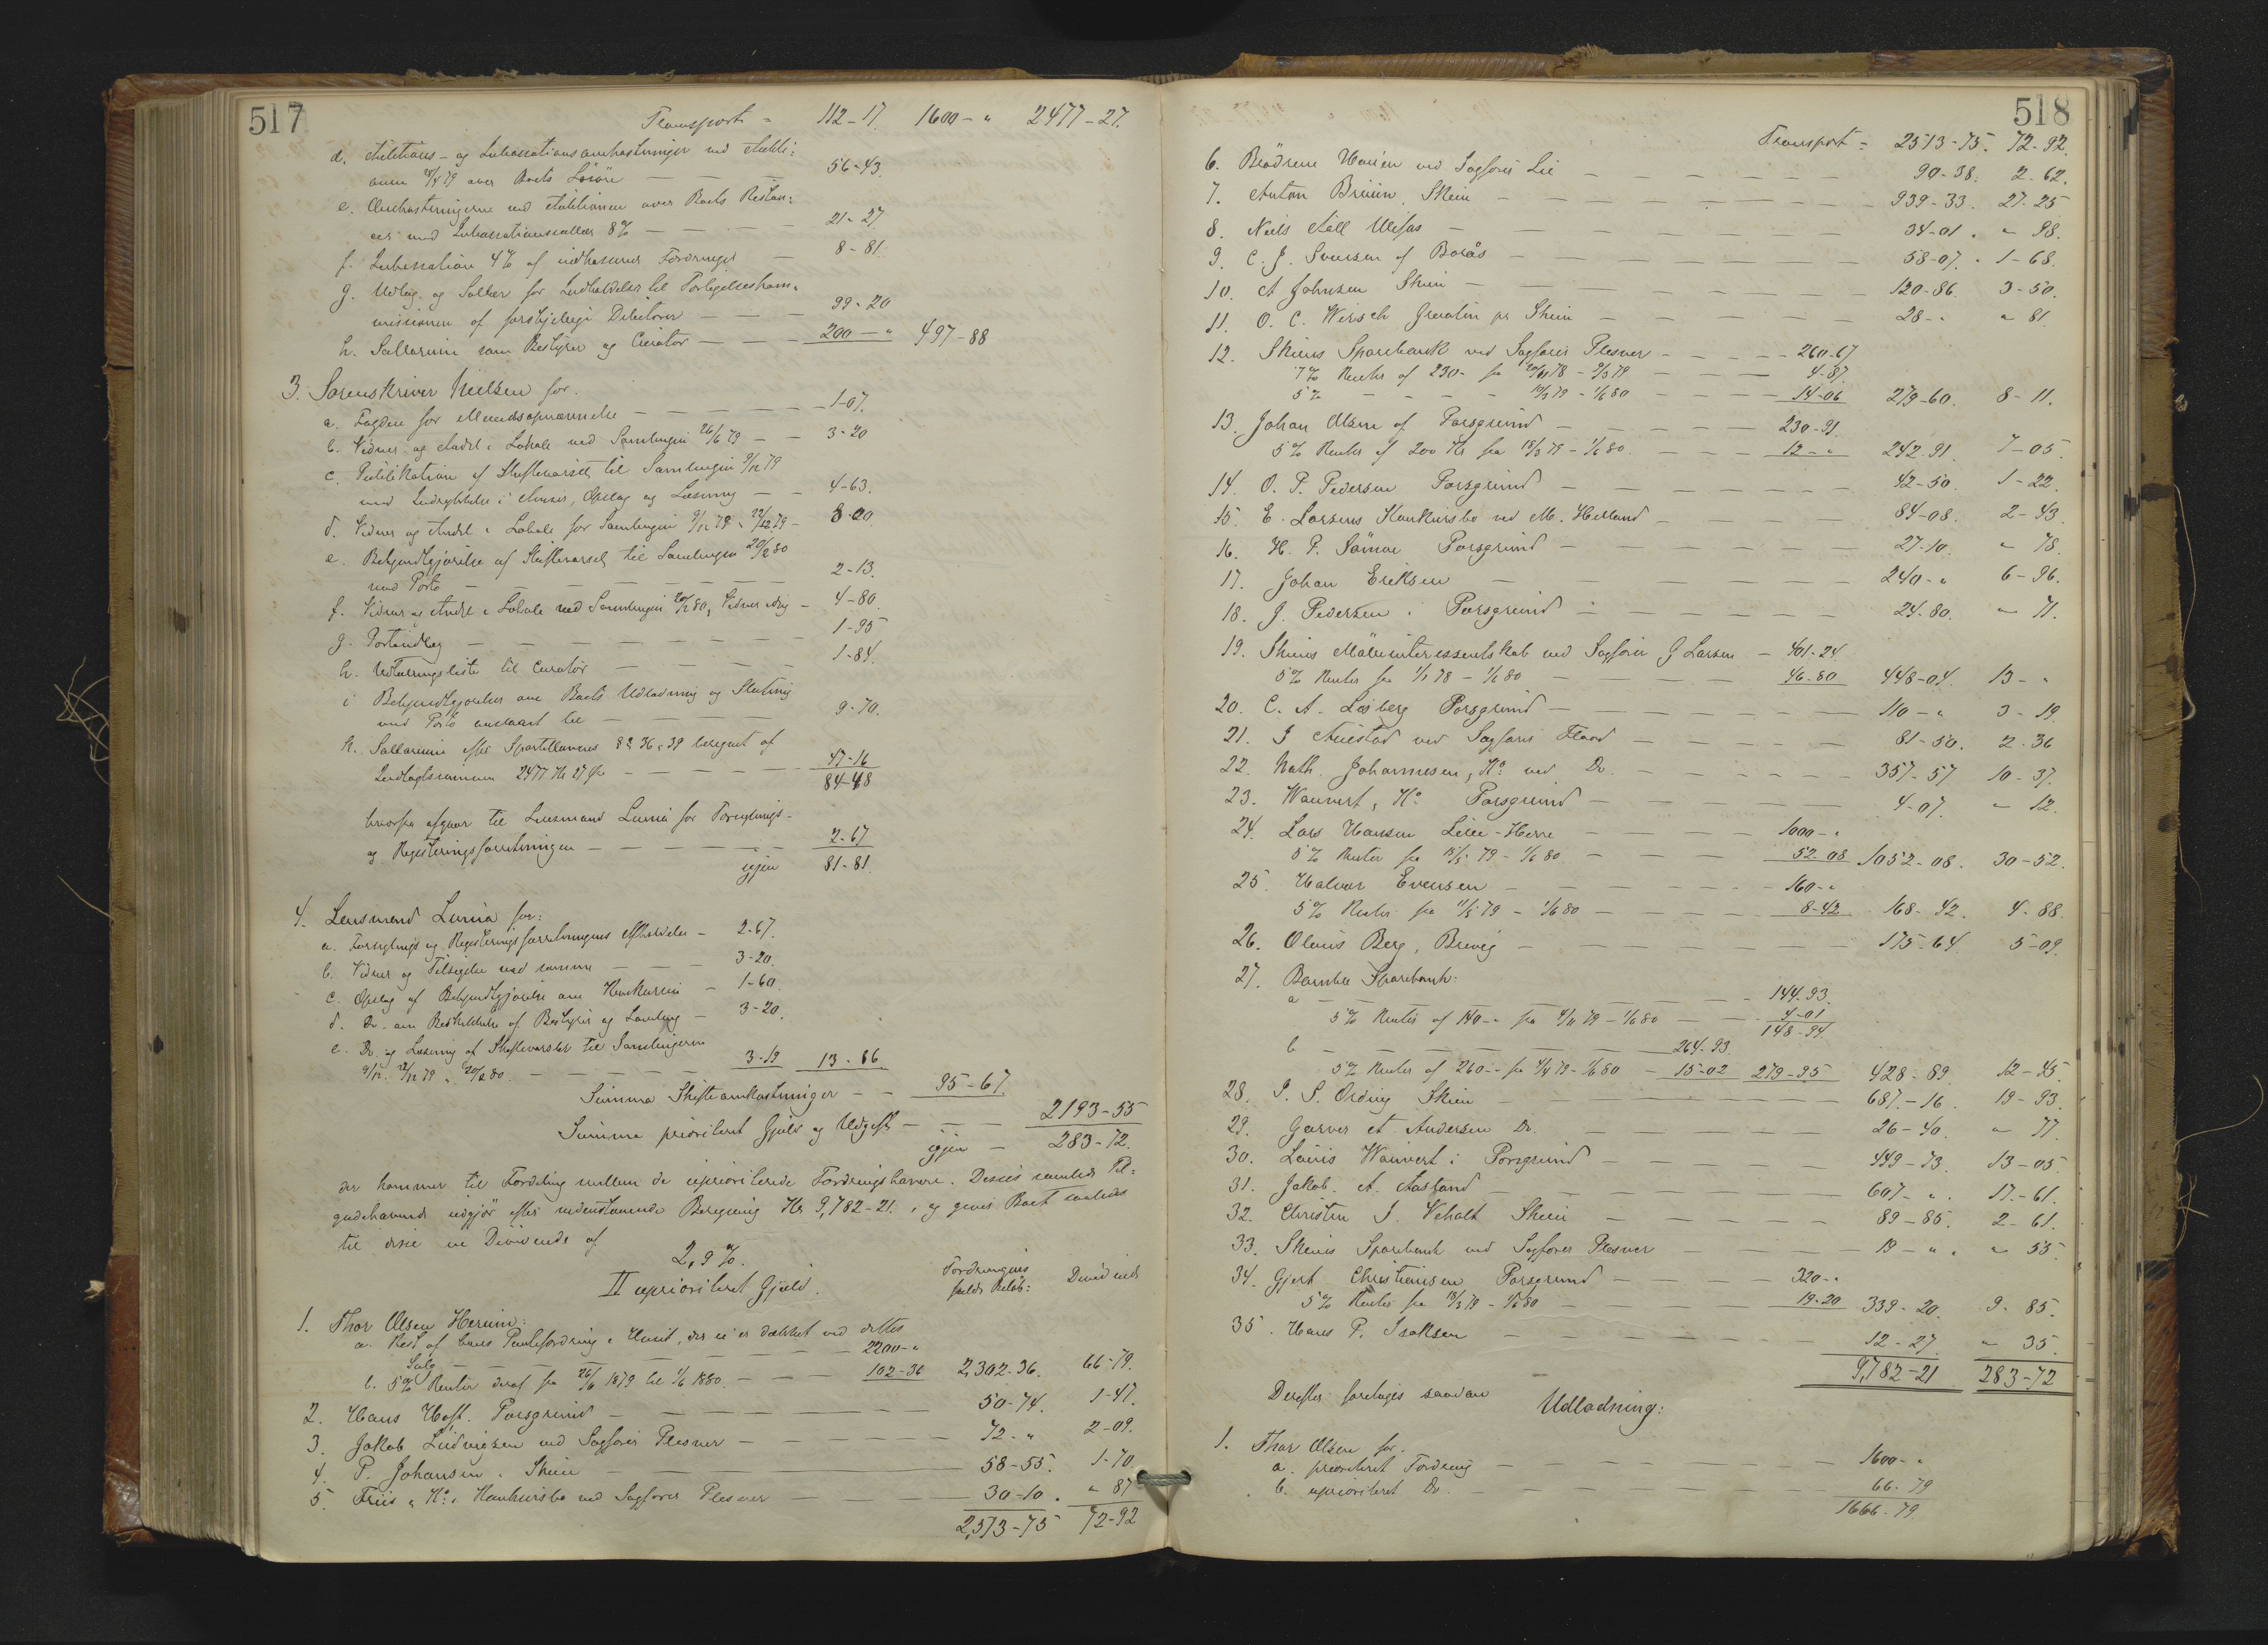 517
Transport = 112-17. 1600-" 2477-27.
d. Auktions- og Inkassationsomkostninger ved Aukti=
onen 28/4 79 over Boets Løsøre — 56-43.
e. Omkostningerne ved Auktionen over Boets Restan=
cer med Inkassationssallær 8% — 21-27
f. Inkassation 4% af indkasserede Fordringer — 8-81.
g. Udlæg og Sallær for Indkaldelser til Forligelseskom=
missionen af forskjellige Debitorer — 99-20
h. Sallarium som Bestyrer og Curator — 200-" 497-88
3. Sorenskriver Nielsen for.
a. Fogden for Mændsopnævnelse — 1-07.
b. Vidner og Andel i Lokale ved Samlingen 26/6 79 — 3-20
c. Publikation af Skiftevarsel til Samlingen 9/12 79
med Indrykkelse i Aviser, Opslag og Læsning — 4-63.
d. Vidner og Andel i Lokale for Samlingen 9/12 79 & 22/12 79 — 8-00
e. Bekjendtgjørelse af Skiftevarsel til Samlingen 20/2 80
med Porto — 2-13.
f. Vidner og Andel i Lokale ved Samlingen 20/2 80, Vidner idag — 4-80.
g. Portoudlæg — 1-95
h. Udlodningsliste til Curator — 1-84.
i Bekjendtgjørelser om Boets Udlodning og Slutning
med Porto anslaaet til — 9-70.
k. Sallarium efter Sportellovens §§ 36 & 39 beregnet af
Indtægtssummen 2477 Kr 27 Øre — 47-16
84-48
hvorfra afgaar til Lensmand Lunia for Forseglings-
og Registreringsforretningen — 2-67
igjen 81-81.
4. Lensmand Lunia for:
a. Forseglings og Registreringsforretningens Afholdelse — 2-67.
b. Vidner og Tilsigelse ved samme — 3-20.
c. Opslag af Bekjendtgjørelse om Konkursen — 1-60.
d. Do. om Beskikkelse af Bestyrer og Samling — 3-20.
e. Do. og Læsning af Skiftevarsler til Samlingerne
9/12. 22/12 79 & 20/2 80. — 3-19 13-86
Summa Skifteomkostninger — 95-67.
Summa prioriteret Gjæld og Udgift — 2193-55
igjen — 283-72.
der kommer til Fordeling mellem de uprioriterede Fordringshavere. Disses samlede Til=
godehavende udgjør efter nedenstaaende Beregning Kr 9,782-21., og giver Boet saaledes
til disse en Dividende af
2,9%.
II uprioriteret Gjæld. Fordringens fulde Beløb: Dividende
1. Thor Olsen Herum:
a. Rest af hans Pantefordring i Huset, der ei er dækket ved dettes
Salg — 2200-"
b. 5% Renter deraf fra 26/6 1879 til 1/6 1880. — 102-36 2,302-36. 66-79.
2. Hans Hoff. Porsgrund — 50-74. 1-47.
3. Jakob Ludvigsen ved Sagfører Plesner — 72-" 2-09.
4. P. Johansen i Skien — 58-55. 1-70
5. Friis & Ko.s Konkursbo ved Sagfører Plesner — 30-10. " 87
2,513-75 72-92
518
Transport = 2513-75. 72-92.
6. Brødrene Hansen ved Sagfører Lie — 90-38. 2-62.
7. Anton Bruun, Skien — 939-33. 27-25
8. Niels Aall Ulefos — 34-01. " 98.
9. C. J. Svensen af Borås — 58-07. 1-68.
10. A Johnsen Skien — 120-86. 3-50.
11. O. C. Wersch Gruatin pr Skien — 28-" " 81.
12. Skiens Sparebank ved Sagfører Plesner — 260-67
7% Renter af 230- fra 20/11 78 - 9/3 79 — 4-87.
5% — 10/3 79 - 1/6 80 — 14-06 279-60. 8-11.
13. Johan Olsen af Porsgrund — 230-91
5% Renter af 200 Kr fra 18/3 79 - 1/6 80. — 12-" 242-91. 7-05
14. O. P. Pedersen Porsgrund — 42-50. 1-22.
15. E. Larsens Konkursbo ved M. Helland — 84-08. 2-43.
16. H. P. Sømoe Porsgrund — 27-10. " 78.
17. Johan Eriksen — 240-" 6-96.
18. J. Pedersen i Porsgrund — 24-80. " 71.
19. Skiens Mølleinteressentskab ved Sagfører G Larsen — 401-24
5% Renter fra 1/2 78 - 1/6 80 — 46-80 448-04. 13-"
20. C. A. Løsberg Porsgrund — 110-" 3-19.
21. J Auestad ved Sagfører Flood — 81-50. 2-36
22. Nath. Johannesen & Ko. ved Do. — 357-57 10-37.
23. Wauvert & Ko. Porsgrund — 4-07. " 12.
24. Lars Hansen Lille-Herre — 1000-"
5% Renter fra 15/5 79 - 1/6 80 — 52-08 1052-08. 30-52.
25. Halvor Evensen — 160-"
5% Renter fra 11/5 79 - 1/6 80 — 8-42 168-42. 4-88.
26. Olaus Berg, Brevig — 175-64. 5-09.
27. Bamble Sparebank:
a — 144-93.
5% Renter af 140-" fra 4/11 79 - 1/6 80 — 4-01
148-94.
b — 264-93.
5% Renter af 260-" fra 4/4 79 - 1/6 80 — 15-02 279-95 428-89. 12-45.
28. P. S. Ording Skien — 687-16. 19-93.
29. Garver et. Andersen Do. — 26-40. " 77.
30. Lauis Wauvert i Porsgrund — 449-73. 13-05.
31. Jakob. A. Aasland — 607-". 17-61.
32. Christen J. Vehalt Skien — 89-85. 2-61.
33. Skiens Sparebank ved Sagfører Plesner — 19-". " 55.
34. Gjert Christiansen Porsgrund — 320-"
5% Renter fra 18/3 79 - 1/6 80 — 19-20 339-20. 9-85.
35. Hans P. Isaksen — 12-27. " 35.
9,782-21 283-72
Derefter foretoges saadan
Udlodning:
1. Thor Olsen for.
a. prioriteret Fordring — 1600-"
b. uprioriteret Do. — 66-79
1666-79